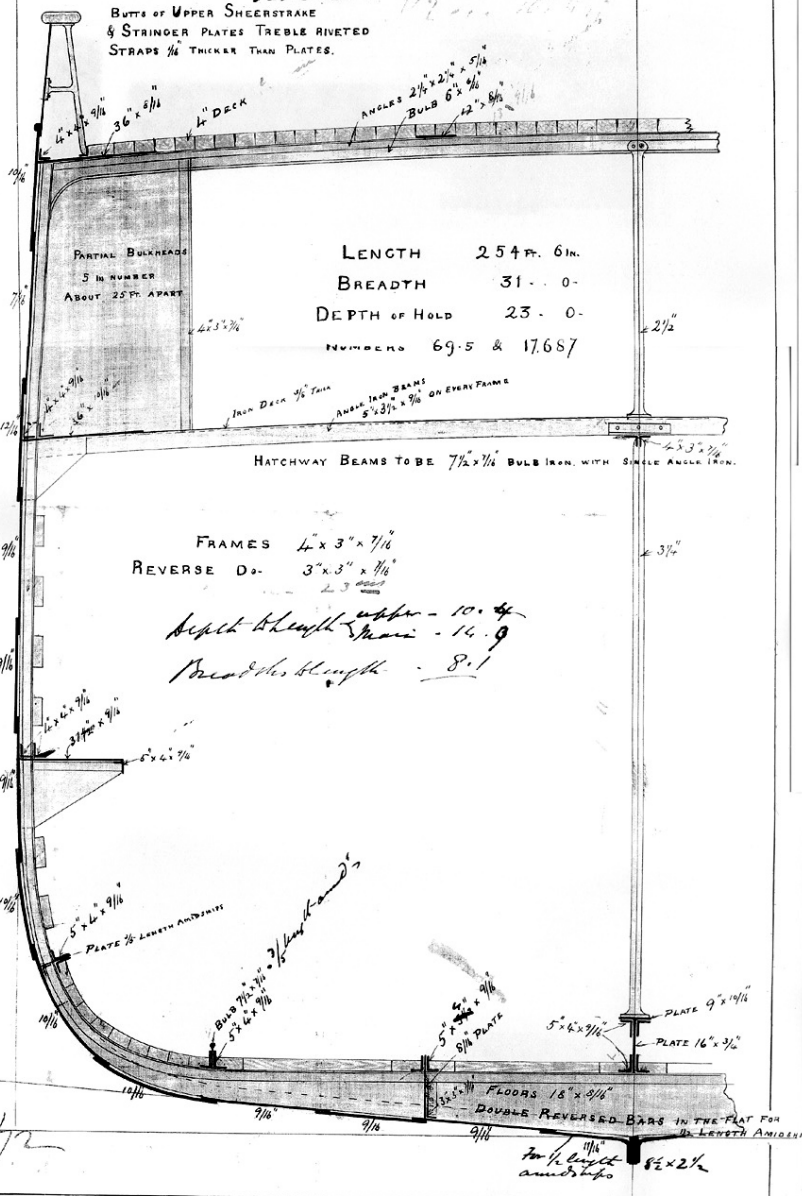 BUTTS OF UPPER SHEERSTRAKE
& STRINGER PLATES TREBLE RIVETED
STRAPS 1/16" THICKER THAN PLATES.
4" x 4" x 9/16"
36" x 8/16"
4" DECK
ANGLES 2 1/4" x 2 1/4" x 5/16"
BULB 6" x 6/16"
10/16"
PARTIAL BULKHEADS
5 IN NUMBER
ABOUT 25 FT. APART
LENGTH 254 FT. 6 IN.
BREADTH 31 - 0 -
DEPTH OF HOLD 23 - 0 -
NUMBERS 69.5 & 17.687
7/16"
4" x 3" x 7/16"
2 1/2"
4" x 4" x 9/16"
IRON DECK
THICK
ANGLE IRON BEAMS
5" x 3 1/2" x 9/16" ON EVERY FRAME
12/16"
4" x 3" x 7/16"
HATCHWAY BEAMS TO BE 7 1/2" x 7/16" BULB IRON. WITH SINGLE ANGLE IRON.
9/16"
FRAMES 4" x 3" x 7/16"
REVERSE DO- 3" x 3" x 7/16"
3 1/4"
Depth to Length { upper - 10.4
main - 14.9
Breadths to length - 8.1
9/16"
4" x 4" x 9/16"
9/16"
10/16"
5" x 4" x 9/16"
PLATE LENGTH AMIDSHIPS
BULB 7 1/2" x 7/16"
length amids
5" x 4" x 9/16"
8/16 PLATE
5" x 4" x 9/16"
PLATE 9" x 10/16"
PLATE 16" x 3/4"
10/16"
10/16
9/16"
9/16
9/16"
FLOORS 18" x 8/16"
DOUBLE REVERSED BARS IN THE FLAT FOR
1/2 LENGTH AMIDSHI
11/16"
For 1/2 length
amidships
8 1/2 x 2 1/2